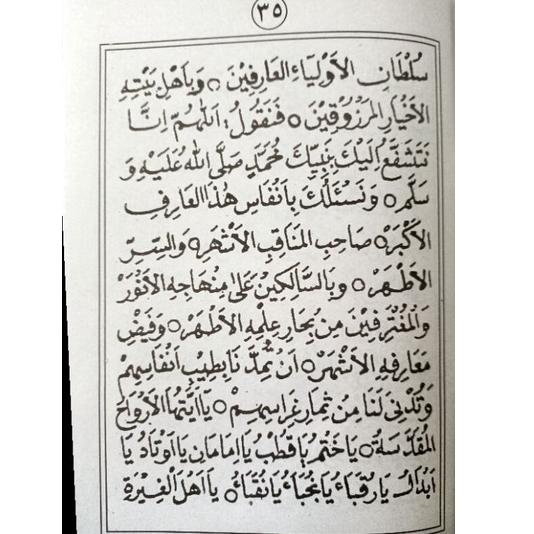 ٣٥
سُلْطَانِ الْأَوْلِيَاءِ الْعَارِفِيْنَ ○ وَبِأَهْلِ بَيْتِهِ
الْأَخْيَارِ الْمَرْزُوْقِيْنَ ○ فَنَقُوْلُ: اَللّٰهُمَّ اِنَّا
نَتَشَفَّعُ اِلَيْكَ بِنَبِيِّكَ مُحَمَّدٍ صَلَّى اللهُ عَلَيْهِ وَ
سَلَّمَ ○ وَنَسْئَلُكَ بِاَنْفَاسِ هٰذَا الْعَارِفِ
الْاَكْبَرِ ○ صَاحِبِ الْمَنَاقِبِ الْاَشْهَرِ ○ وَالسِّرِّ
الْاَطْهَرِ ○ وَبِالسَّالِكِيْنَ عَلٰى مِنْهَاجِهِ الْاَنْوَرْ
وَالْمُغْتَرِفِيْنَ مِنْ بِحَارِ عِلْمِهِ الْاَظْهَرْ ○ وَفَيْضِ
مَعَارِفِهِ الْاَشْهَرْ ○ اَنْ تُمِدَّنَا بِطِيْبِ اَنْفَاسِهِمْ
وَتُدْنِيَ لَنَا مِنْ ثِمَارِ غِرَاسِهِمْ ○ يَا اَيَّتُهَا الْاَرْوَاحُ
الْمُقَدَّسَةُ ○ يَا خَتْمُ يَا قُطْبُ يَا اِمَامَانِ يَا اَوْتَادُ يَا
اَبْدَالُ يَا رُقَبَاءُ يَا نُجَبَاءُ يَا نُقَبَاءُ ○ يَا اَهْلَ الْغِيْرَةِ